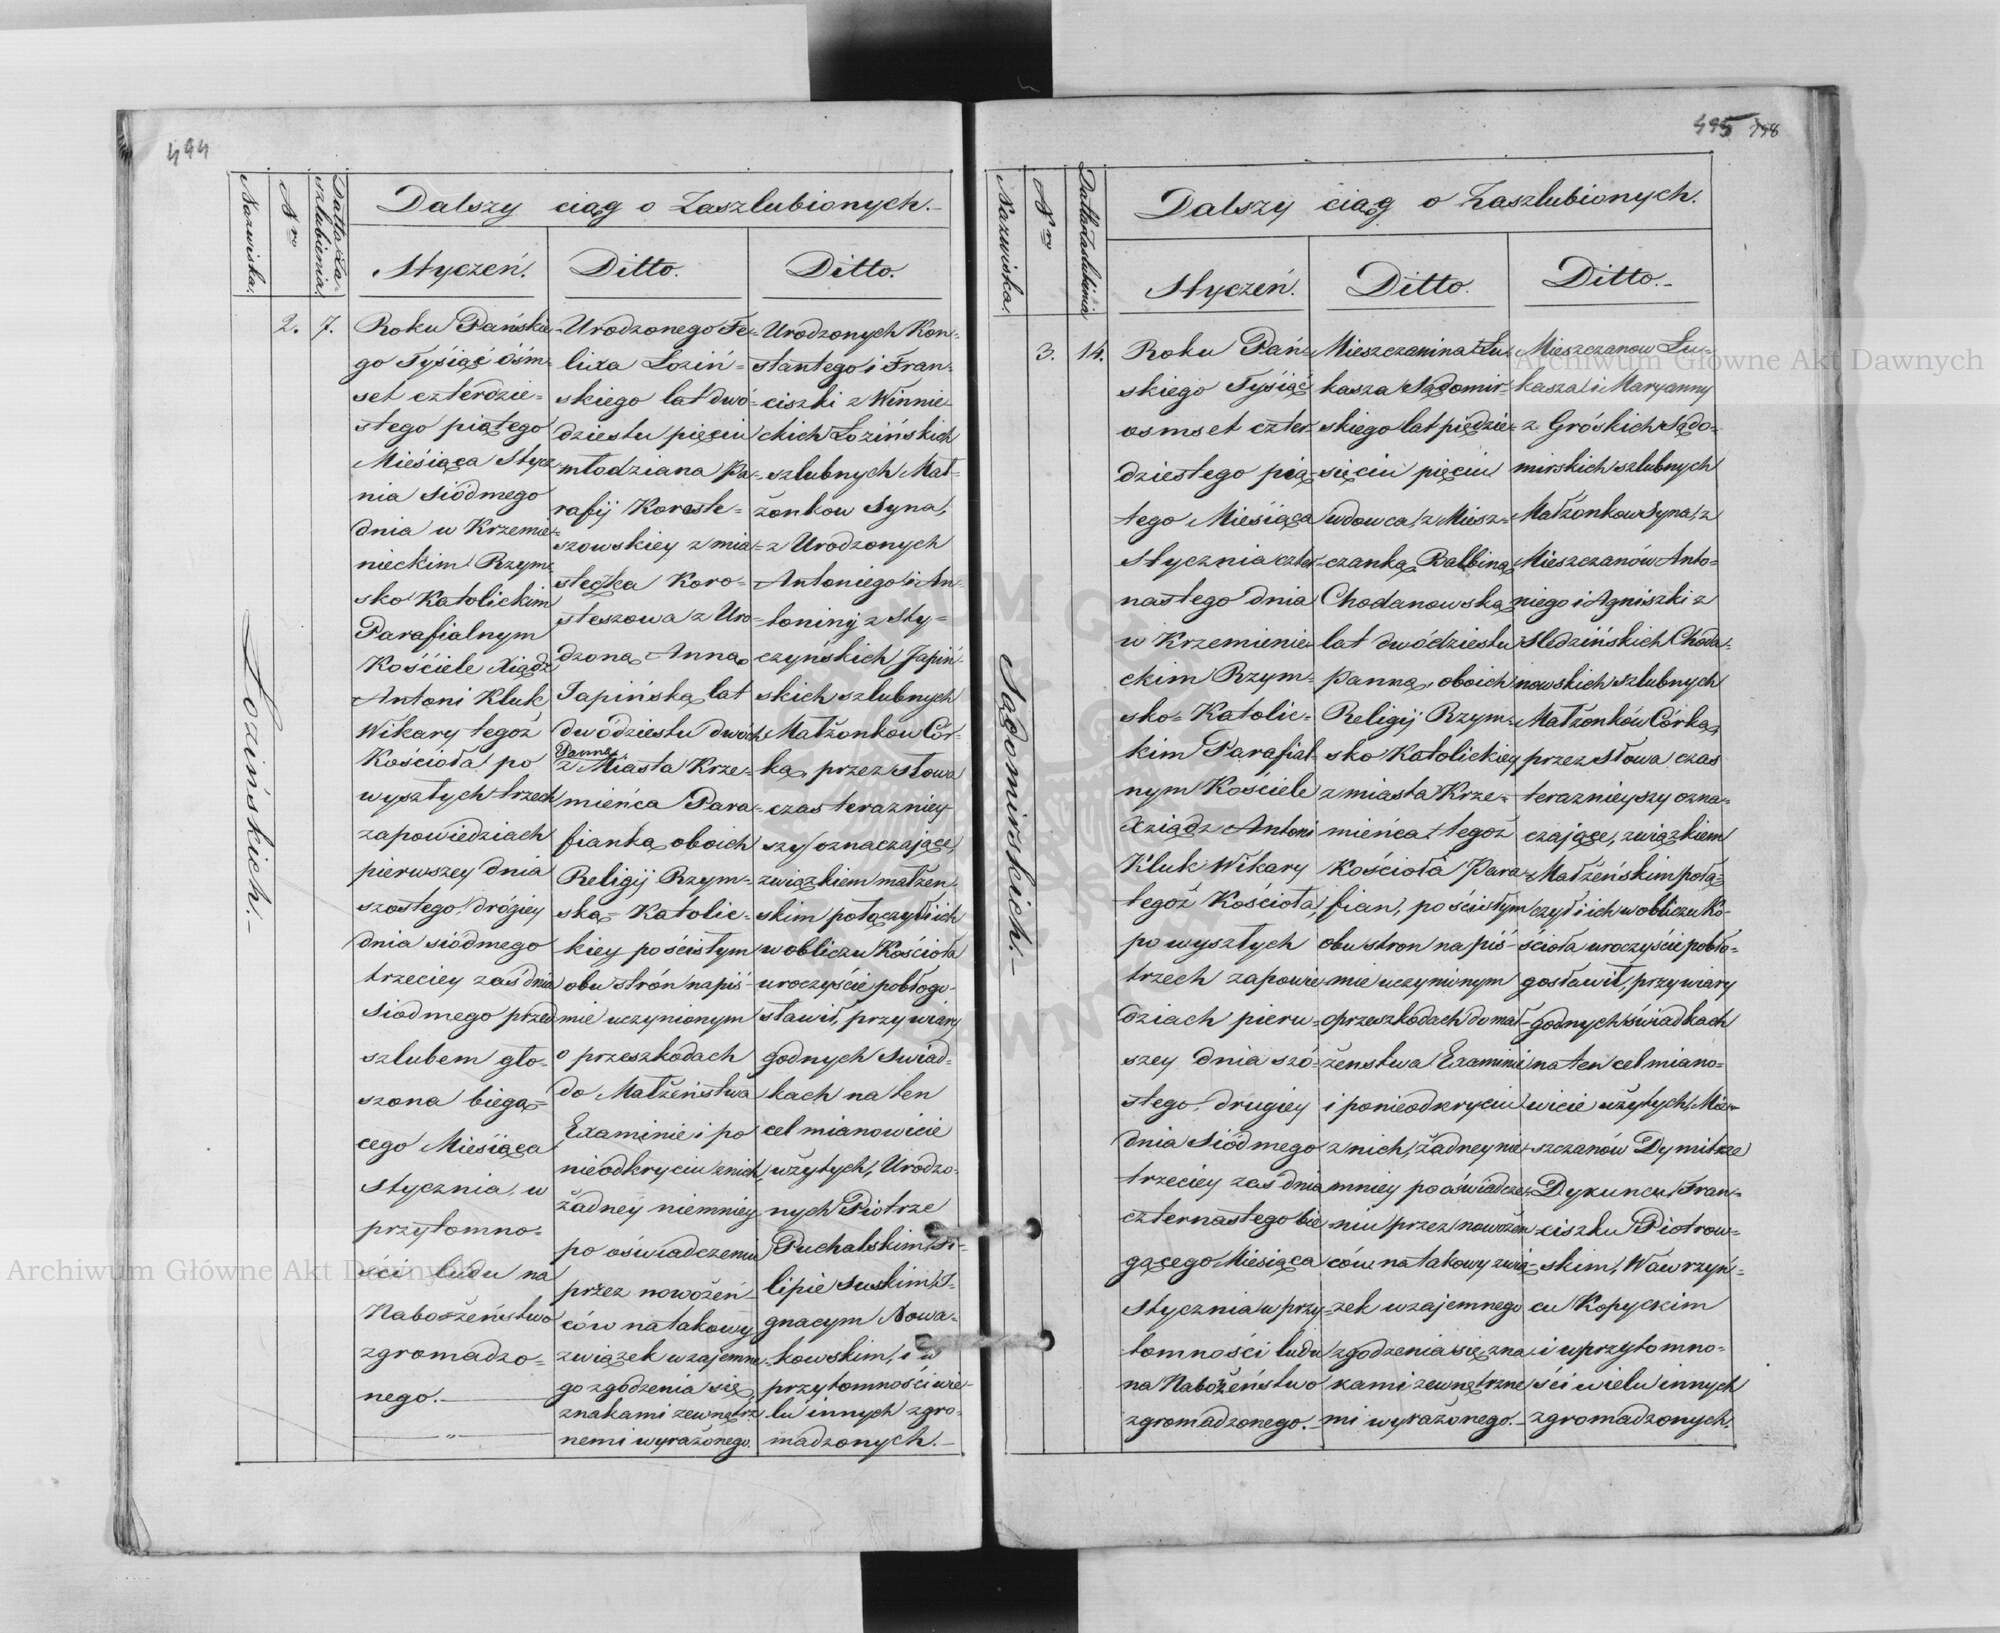 494
Nazwiska.
Nro
Datta Za-
szlubienia.
Dalszy ciąg o Zaszlubionych.-
Styczeń.
Ditto.
Ditto.
Łozińskich.-
2.
7.
Roku Pańskie-
go Tysiąć óśm-
set czterdzie=
stego piątego
Miesiąca Stycz
nia siódmego
dnia w Krzemie=
nieckim Rzym=
sko Katolickim
Parafialnym
Kościele Xiądz
Antoni Kluk
Wikary tegoż
Kościoła po
wyszłych trzech
zapowiedziach
pierwszey dnia
szostego, drógiey
dnia siódmego
trzeciey zaś dnia
Siodmego przed
szlubem gło=
szona biegą=
cego Miesiąca
Stycznia, w
przytomno=
ści ludu na
Nabożeństwo
zgromadzo=
nego.-
Urodzonego Fe-
lixa Łoziń=
skiego lat dwó-
dziestu pięciu
młodziana Pa-
rafij Koroste=
szowskiey z mia=
steczka Koro=
steszowa z Uro=
dzoną Anną
Japińską lat
dwódziestu dwóch
Panną
z Miasta Krze-
mieńca Para-
fianką oboich
Religij Rzym=
ską= Katolic=
kiey po ścisłym
obu strón na piś-
mie uczynionym
o przeszkodach
do Małżeństwa
Examinie i po
nieodkryciu z nich
żadney niemniey
po oświadczeniu
przez nowożeń-
ców na takowy
związek wzajemne-
go zgodzenia się
znakami zewnętrz
nemi wyrażonego.
Urodzonych Kon-
stantego i Fran-
ciszki z Winnie
ckich Łozińskich
szlubnych Mał-
żonkow Syna,
z Urodzonych
Antoniego i An-
toniny z Sty=
czyńskich Japiń-
skich szlubnych
Małżonkow Cór-
ką, przez słowa
czas terazniey
szy oznaczające,
związkiem małżeń
skim połączył i ich
w obliczu Kościoła
uroczyście pobłogo-
sławił, przy wiary
godnych Swiad=
kach na ten
cel mianowicie
użytych, Urodzo-
nych Piotrze
Puchalskim, Fi-
lipie Suskim, I-
gnacym Nowa-
kowskim, i w
przytomności wie-
lu innych zgro-
madzonych.-
495 798
Nazwiska.
Nro
Datta Zaslubinia
Dalszy ciąg o Zaszlubionych.
Styczeń.
Ditto.
Ditto.-
Sądomirskich.-
3.
14.
Roku Pań-
skiego Tysiąć
osmset czter-
dziestego pią
tego Miesiąca
Stycznia czter-
nastego dnia
w Krzemienie-
ckim Rzym=
sko= Katolic=
kim Parafial-
nym Kościele
Xziądz Antoni
Kluk Wikary
tegoż Kościoła,
po wyszłych
trzech zapowie
dziach pierw=
szey dnia szó-
stego, drugiey
dnia Siódmego
trzeciey zaś dnia
czternastego bie
gącego Miesiąca
Stycznia w przy-
tomności ludu
na Nabożeństwo
zgromadzonego.-
Mieszczanina Łu-
kasza Sądomir-
skiego lat pięćdzie-
sięciu pięciu
wdowca, z Miesz=
czanką Balbiną
Chodanowską
lat dwódziestu
Panną, oboich
Religij Rzym=
sko Katolickiey
z miasta Krze-
mieńca tegoż
Kościoła Para-
fian, po ścisłym
obu stron na piś-
mie uczynionym
o przeszkodach do mał-
żenstwa Examinie
i po nieodkryciu
z nich, żadney nie
mniey po oświadcze-
niu przez nowożeń
ców na takowy zwią-
zek wzajemnego
zgodzenia się zna
kami zewnętrzne
mi wyrażonego.-
Mieszczanow Łu-
kasza i Maryanny
z Gróskich Sądo-
mirskich szlubnych
Małżonkow Syna, z
Mieszczanów Anto-
niego i Agniszki z
Sledzińskich Choda-
nowskich szlubnych
Małżonków Córką,
przez słowa czas
teraznieyszy ozna-
czające, związkiem
Małżeńskim połą-
czył i ich w obliczu Ko-
ścioła uroczyście pobło-
gosławił, przy wiary
godnych świadkach
na ten cel miano-
wicie użytych, Mie-
szczanów Dymitrze
Dykuncu, Fran-
ciszku Piotrow-
skim, Wawrzyń-
cu Kopyckim
i w przytomno-
ści wielu innych
zgromadzonych.
Archiwum Główne Akt Dawnych
Archiwum Główne Akt Dawnych